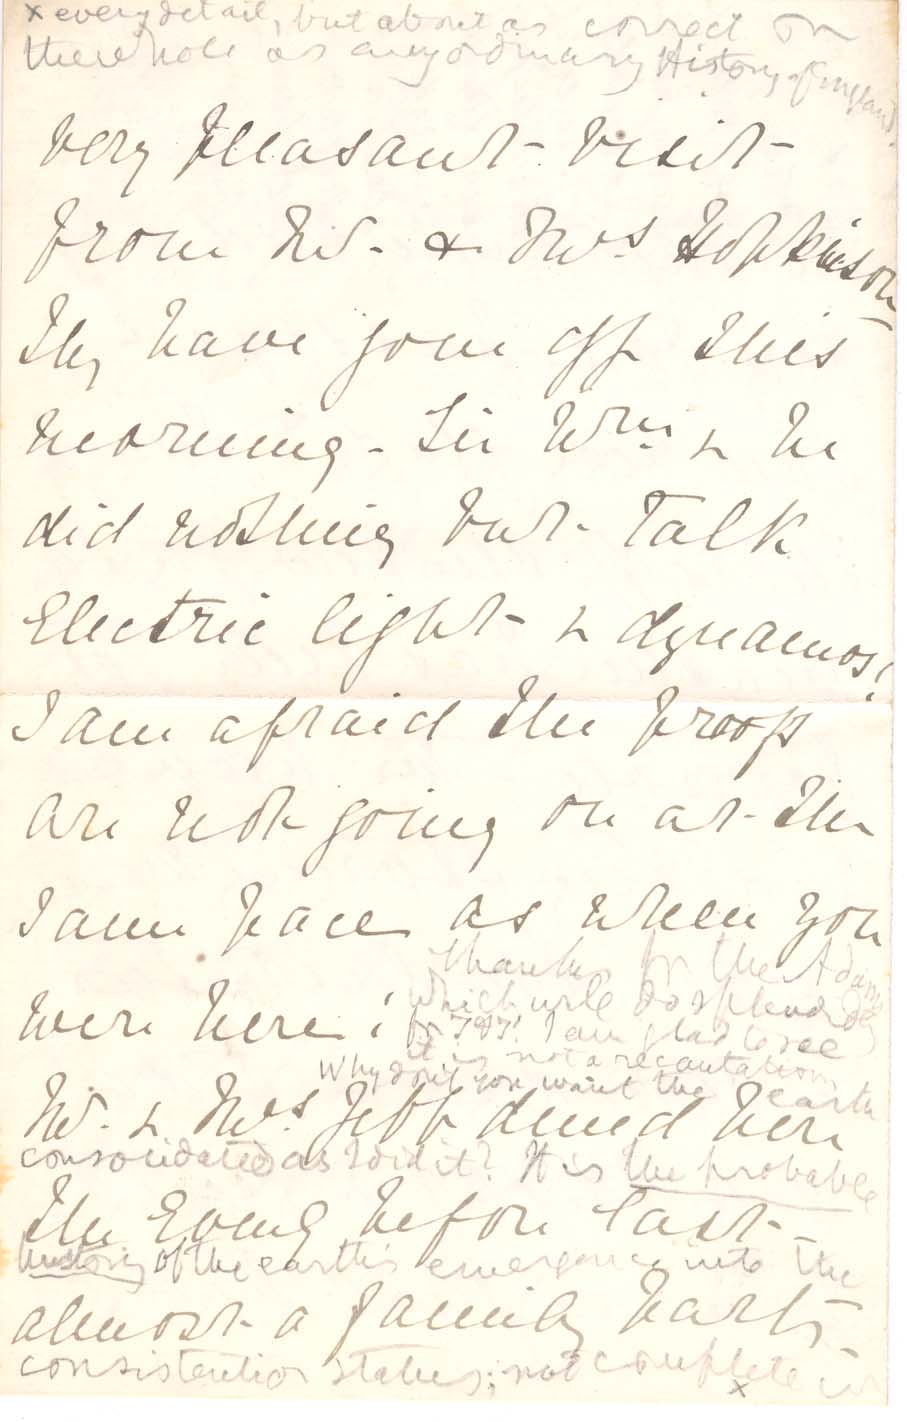 x every detail, but about as correct on
the whole as any ordinary History of England.
very pleasant visit
from Mr. & Mrs Hopkinson
They have gone off this
morning - Sir Wm. & he
did nothing but talk
Electric light & dynamos!
I am afraid the proofs
are not going on at the
same pace as when you
were here!
Thanks for the Adams
which will do splendidly
for T & T'. I am glad to see
it is not a recantation.
Why don't you want the earth
Mr. & Mrs Jebb dined here
consolidated as I did it? It is the probable
the Eveng before last -
history of the earth's emergence into the
almost a family party -
consistentior status; not complete in
x